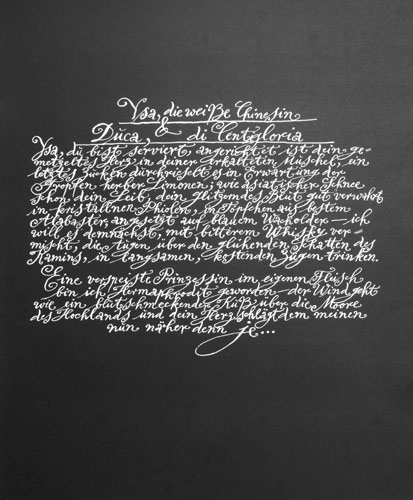 Ysa, die weiße Chinesin
&
Duca, di Centgloria
Ysa, du bist serviert, angerichtet ist dein ge-
metzeltes Herz in deiner erkalteten Muschel, ein
letztes Zucken durchrieselt es in Erwartung der
Tropfen herber Limonen, wie asiatischer Schnee
schon dein Leib, dein glitzerndes Blut gut verwahrt
in kristallner Phiolen, in Töpfchen aus bestem
Alabaster, angesetzt auf blauem Wacholder – ich
will es demnächst, mit bitterem Whisky ver-
mischt, die Augen über den glühenden Schatten des
Kamins, in langsamen, kostenden Zügen trinken
Eine verspeiste Prinzessin im eigenen Fleisch
bin ich Hermaphrodit geworden – der Wind geht
wie ein blutschmeckender Kuß über die Moore
des Hochlands und dein Herz schlägt dem meinen
nun näher denn je...